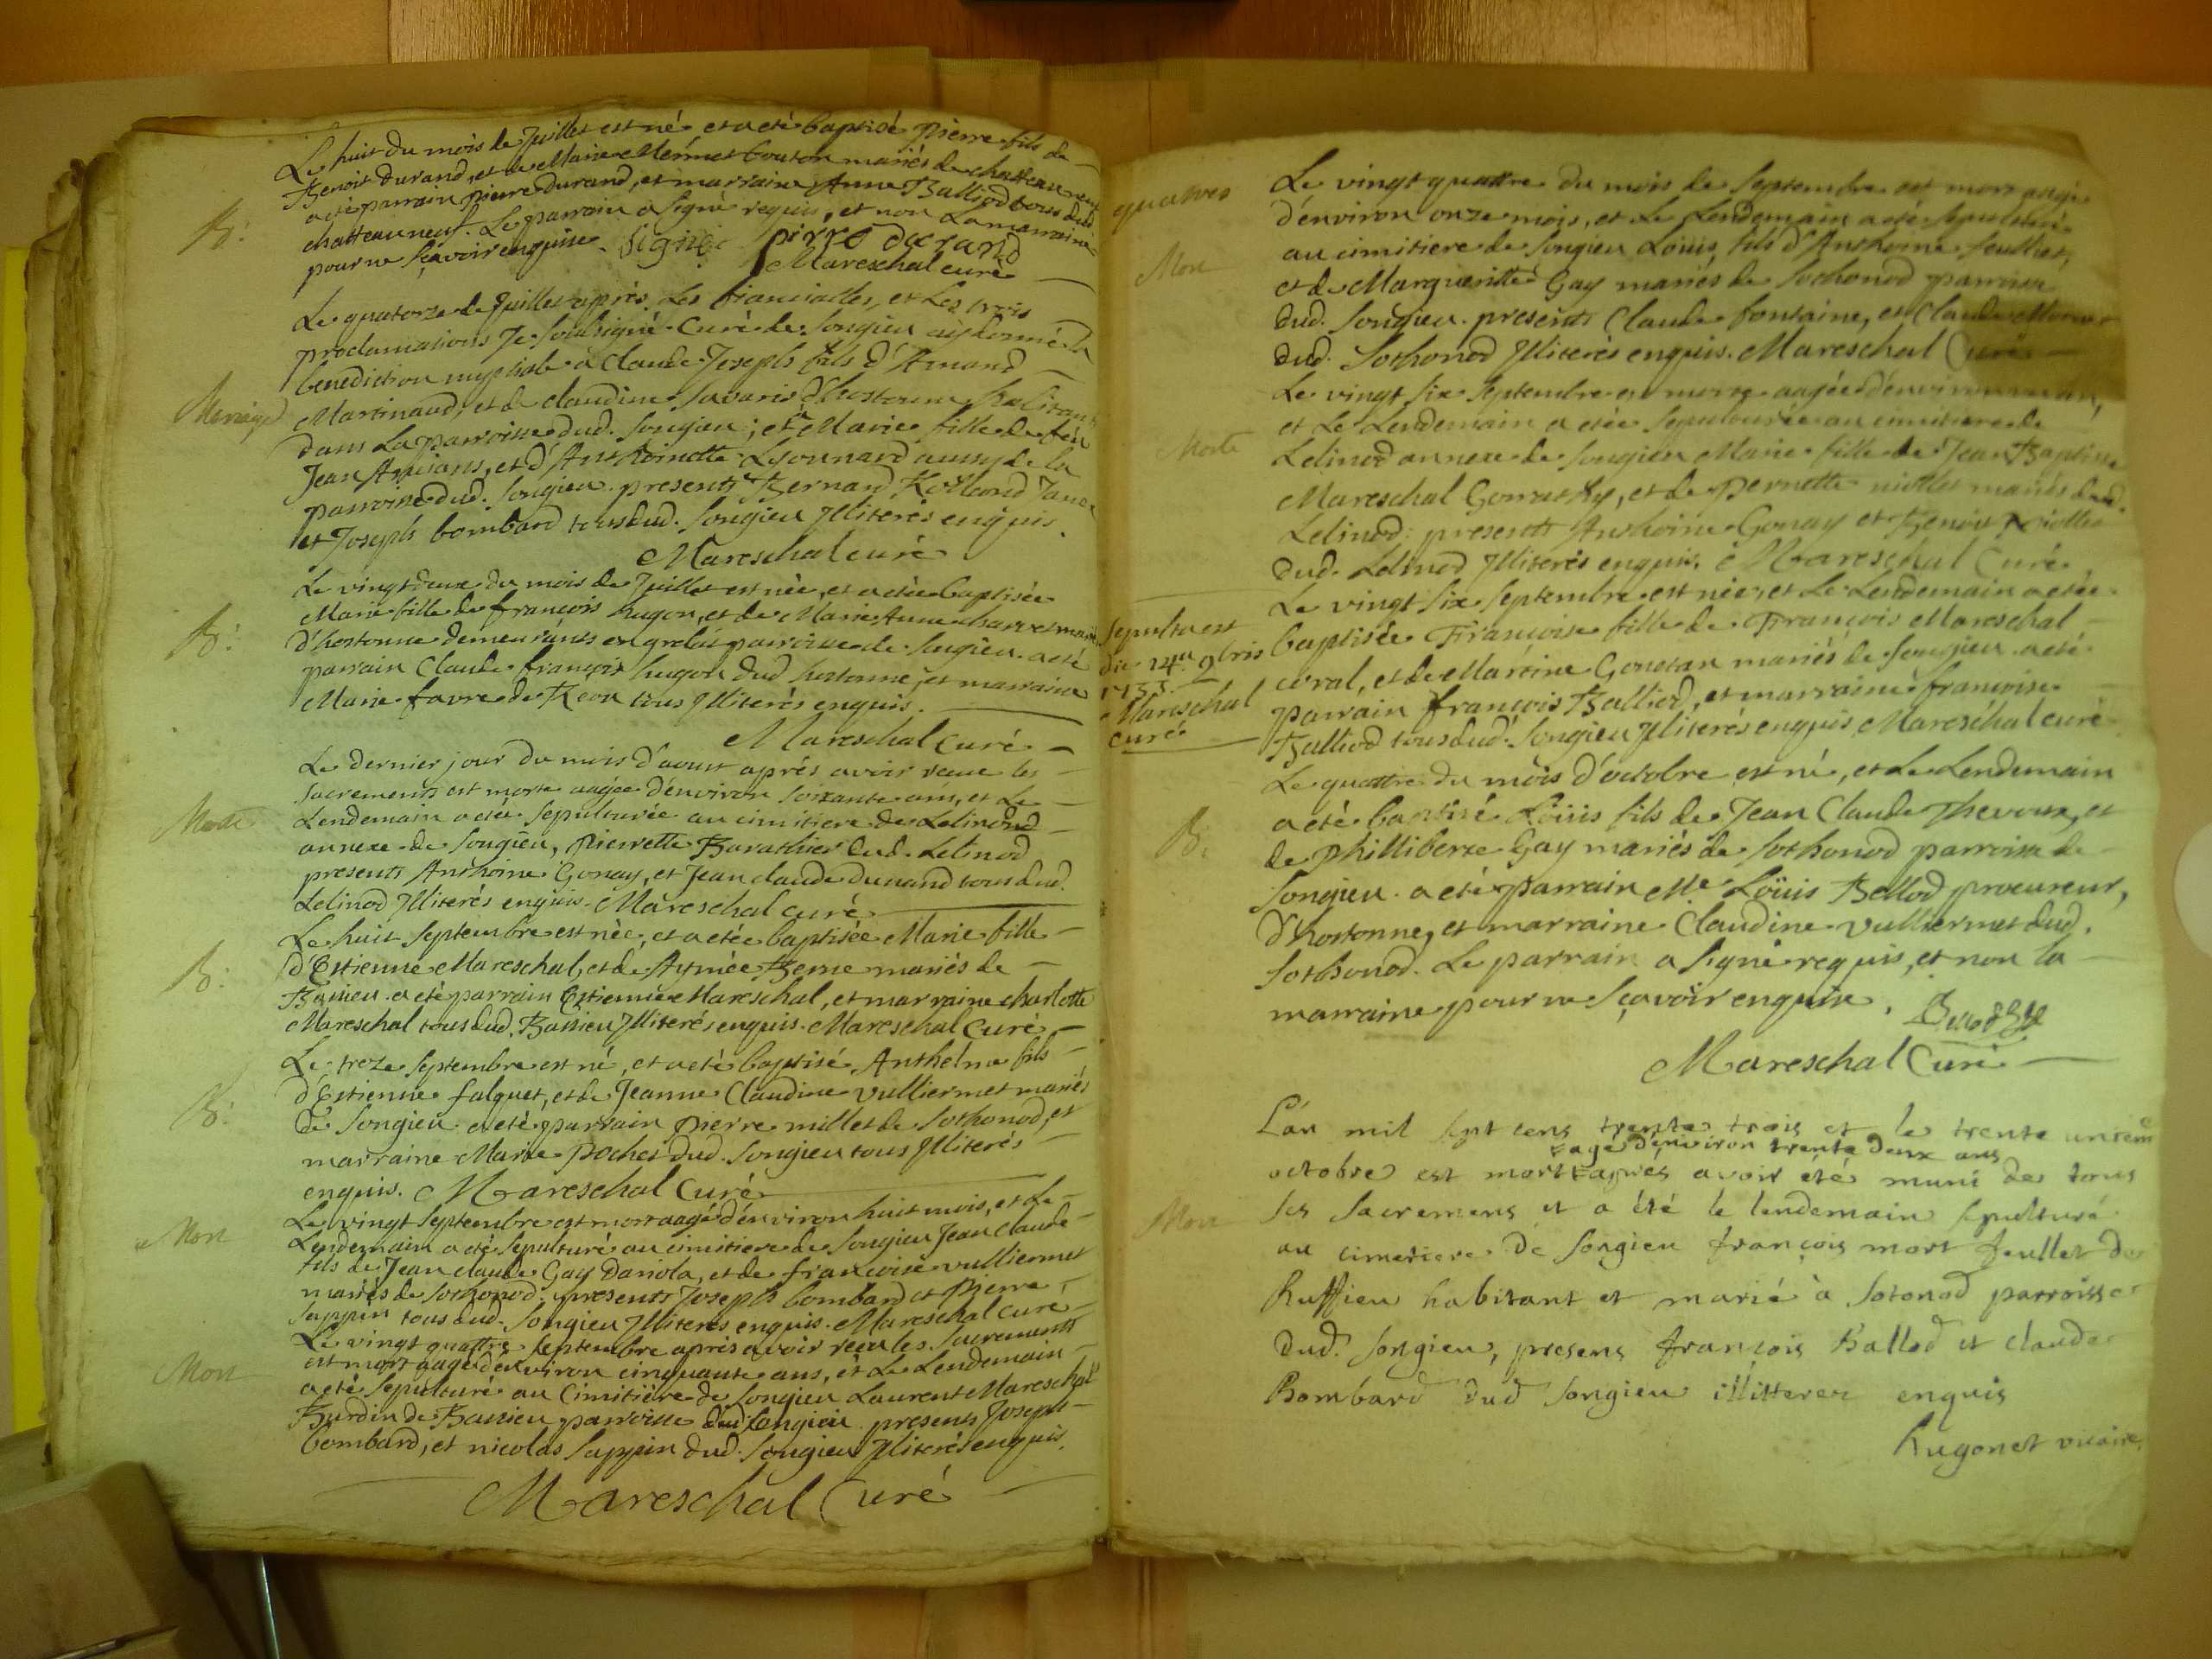 Le huit du mois de Juillet est né et a eté baptisé Pierre fils de
Benoit Durand, et de Marie Mermet bouton mariés de chatteauneuf
a eté parrain pierre Durand, et marraine Anne Balliod tous dud.
B:
chatteauneuf. Le parrain a signé requis, et non La marraine
pour ne sçavoir enquise. Signé: pirre durand
Mareschal curé
Le quatorze de Juillet après Les fiancialles, et Les trois
proclamations Je soubsigné Curé de Songieu ay donné la
benediction nuptiale a Claude Joseph fils d'Amand
Mariage
Martinaud, et de claudine Savarin d'hostonne habitants
dans La parroisse dud. Songieu; et a Marie fille de feu
Jean Ancians, et d'Anthoinette Lyonnard aussy de la
parroisse dud. Songieu. presents Bernard Rolland
et Joseph bombard tous dud. Songieu Illiterés enquis
Mareschal curé
Le vingt deux du mois de Juillet est née, et a etée baptisée
Marie fille de françois hugon, et de Marie Anne charvet mariés
B:
d'hostonne demeurants en parroisse de Songieu. a eté
parrain Claude françois hugon dud hostonne, et marraine
Marie favre de tous Illiterés enquis.
Mareschal Curé
Le dernier jour du mois d'aoust aprés avoir receu les
sacrements est morte aagée d'environ soixante ans, et Le
Morte
Lendemain a etée sepulturée au cimitiere de Lelinod
annexe de Songieu, Pierrette Barathier dud. Lelinod
presents Anthoine Gonay, et Jean claude dunand tous dud.
Lelinod Illiterés enquis. Mareschal curé
Le huit septembre est née, et a etée baptisée Marie fille
B:
d'Estienne Mareschal, et de Aymée Berne mariés de
Bassieu. a eté parrain Estienne Mareschal, et marraine charlotte
Mareschal tous dud. Bassieu Illiterés enquis. Mareschal Curé
Le treze septembre est né, et a eté baptisé Anthelme fils
B:
d'Estienne falquet, et de Jeanne Claudine vulliermet mariés
de Songieu. a eté parrain pierre millet de Sothonod, et
marraine Marie Pochet dud. Songieu tous Illiterés
enquis. Mareschal Curé
Mort
Le vingt septembre est mort aagé d'environ huit mois, et Le
Lendemain a eté sepulturé au cimitiere de Songieu Jean claude
fils de Jean claude Gay Dariola, et de françoise vulliermet
mariés de Sothonod. presents Joseph bombard et Pierre
Sappin tous dud. Songieu Illiterés enquis. Mareschal Curé
Le vingt quattre septembre aprés avoir receu les sacrements
Mort
est mort aagé d'environ cinquante ans, et Le Lendemain
a eté sepulturé au Cimitière de Songieu Laurent Mareschal
Burdin de Bassieu parroisse dud Songieu. presents Joseph
bombard, et nicolas Sappin dud. Songieu Illiterés enquis.
Mareschal Curé
quatres
Le vingt quattre du mois de septembre est mort aagé
d'environ onze mois, et Le Lendemain a eté sepulturé
Mort
au cimitiere de Songieu Loüis, fils d'Anthoine feulliet,
et de Margueritte Gay mariés de Sothonod parroisse
dud. Songieu. presents Claude fontaine, et Claude
dud. Sothonod Illiterés enquis. Mareschal Curé
Le vingt six septembre est morte aagée d'environ un an,
Morte
et Le Lendemain a etée sepulturée au cimitiere de
Lelinod annexe de Songieu Marie fille de Jean Baptiste
Mareschal, et de Pernette niollet mariés dud.
Lelinod; presents Anthoine Gonay et Benoit niollet
dud. Lelinod Illiterés enquis. Mareschal Curé
Le vingt six septembre est née, et Le Lendemain a etée
Sepulta est
die 14a 9bris
1733.
Mareschal
curé
baptisée Françoise fille de François Mareschal
coral, et de Martine Gonetan mariés de Songieu. a eté
parrain françois Balliod, et marraine françoise
Balliod tous dud. Songieu Illiterés enquis Mareschal curé
Le quattre du mois d'octobre est né, et Le Lendemain
a eté baptisé Loüis fils de Jean Claude Thevoux, et
B:
de philliberte Gay mariés de Sothonod parroisse de
Songieu. a eté parrain Me Loüis Bellod procureur,
d'hostonne, et marraine Claudine vulliermet dud.
Sothonod. Le parrain a signé requis, et non la
marraine pour ne sçavoir enquise. Bellod
Mareschal Curé
L'an mil sept cens trente trois et le trente unieme
agé d'environ trente deux ans
octobre est mort apres avoir été muni de tous
Mort
les sacremens et a été le lendemain sepulturé
au cimetiere de Songieu françois mort feullet de
Ruffieu habitant et marié à Sotonod parroisse
dud. Songieu, presens françois Ballod et claude
Bombard dud Songieu illitterez enquis
hugonet vicaire